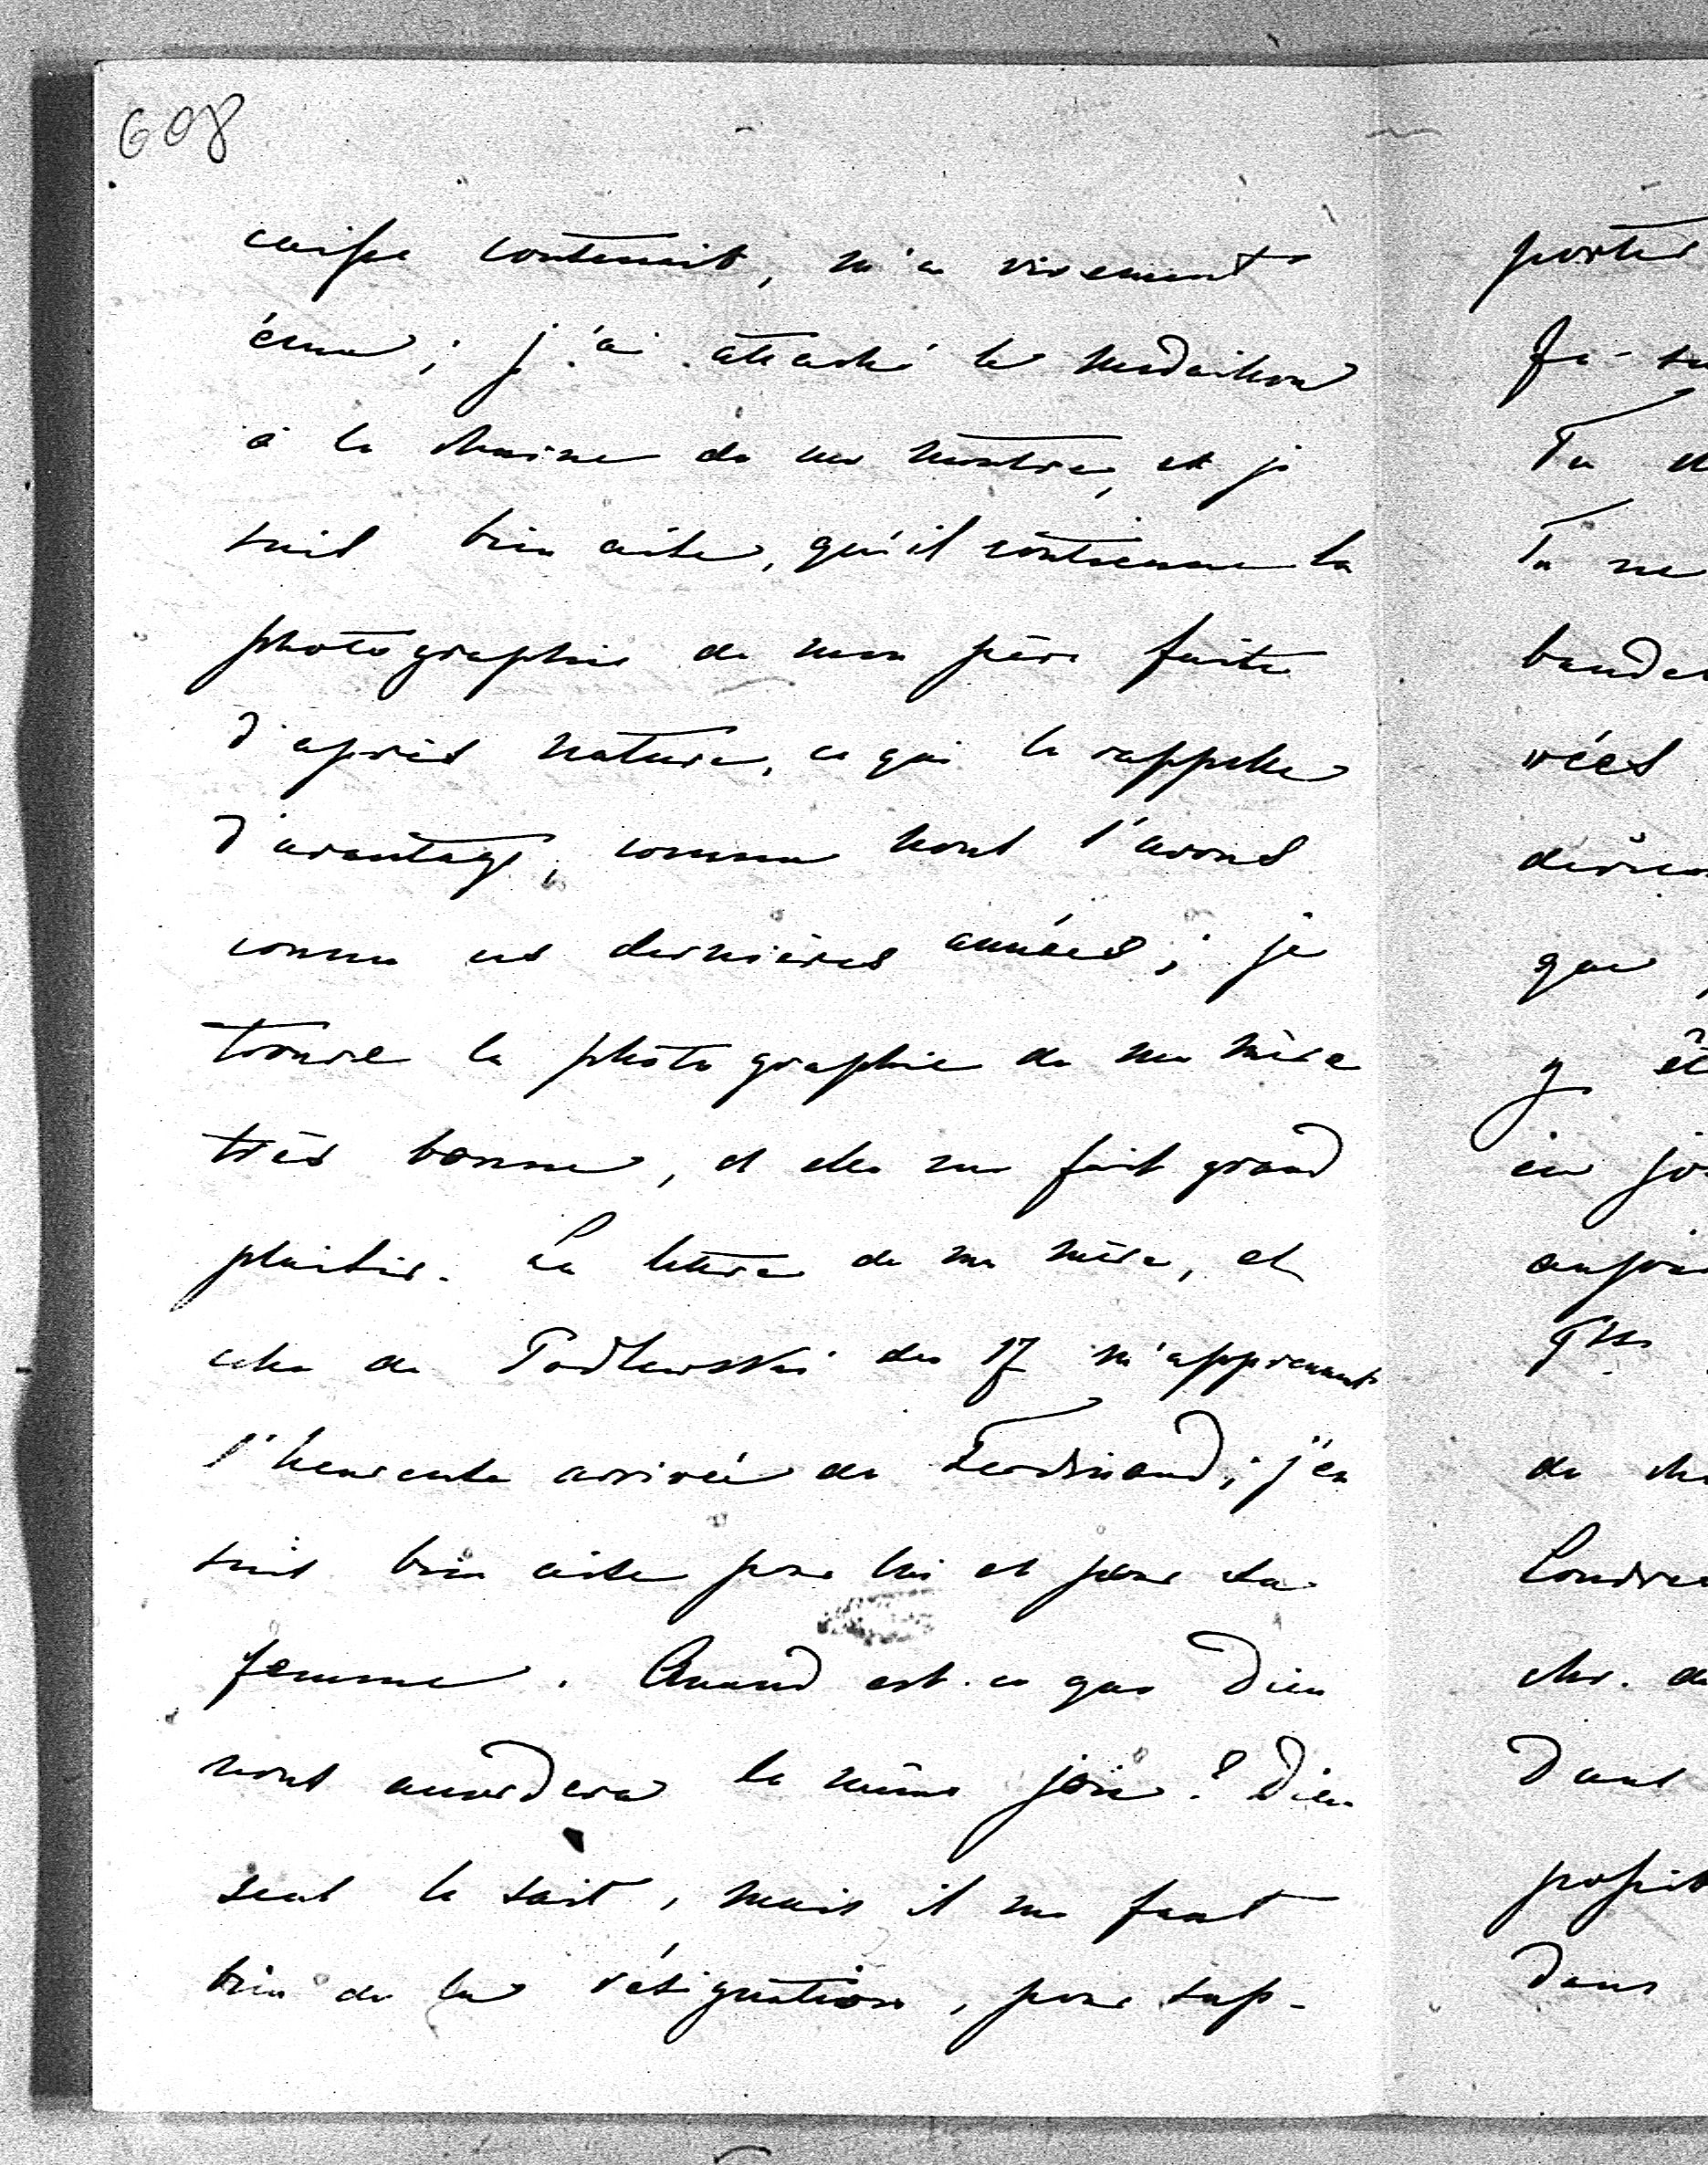 608
caisse contenait, m'a vivement
émue; j'ai attaché le medaillon
à la chaine de ma montre, et je
suis bien aise, qu'il contienne la
photographie de mon père faite
d'après nature, ce qui le rappelle
d'avantage, comme nous l'avons
connu ces dernières années; je
trouve la photographie de ma mère
très bonne, et elle me fait grand
plaisir. La lettre de ma mère, et
celle de Podlewski du 17 m'apprennent
l'heureuse arrivée de Ferdinand; j'en
suis bien aise pour lui et pour sa
femme. Quand est-ce que Dieu
nous accordera la même joie? Dieu
seul le sait, mais il me faut
bien de la résignation, pour sup-
porter
Tu
Tu ne
que
y
de
Londres
Dans
dans